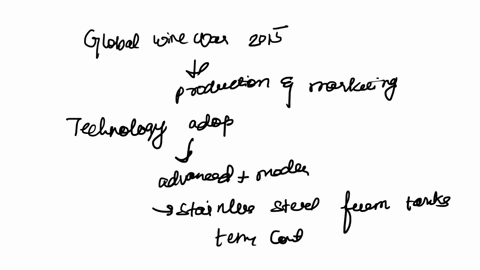 Global wine war 2015
↓
production & marketing
Technology adop
↓
advanced + moder
→ stainless steel ferm tanks
tem cont